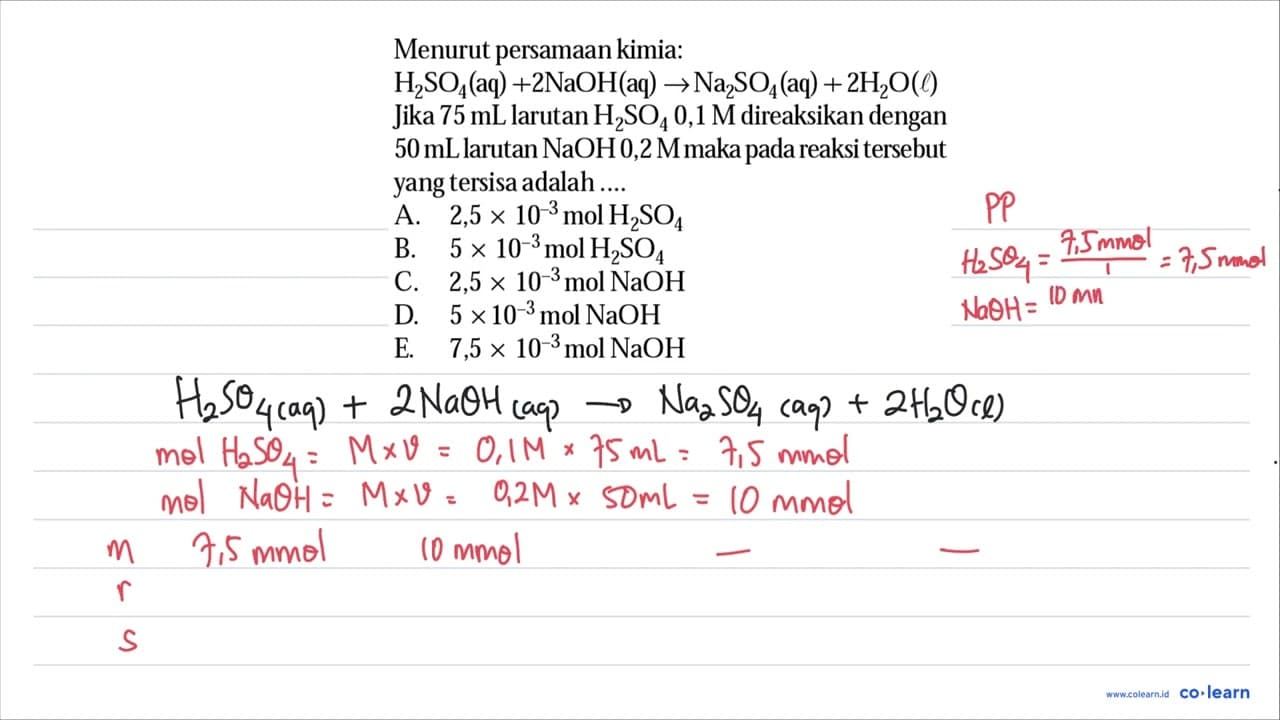 Menurut persamaan kimia:
H₂SO₄(aq) +2NaOH(aq) → Na₂SO₄(aq) + 2H₂O(ℓ)
Jika 75 mL larutan H₂SO₄ 0,1 M direaksikan dengan
50 mL larutan NaOH 0,2 M maka pada reaksi tersebut
yang tersisa adalah ....
A. 2,5 × 10⁻³ mol H₂SO₄
B. 5 × 10⁻³ mol H₂SO₄
C. 2,5 × 10⁻³ mol NaOH
D. 5 × 10⁻³ mol NaOH
E. 7,5 × 10⁻³ mol NaOH
PP
H₂SO₄ = 7,5 mmol / 1 = 7,5 mmol
NaOH = 10 mn
H₂SO₄ (aq) + 2NaOH (aq) → Na₂SO₄ (aq) + 2H₂O (l)
mol H₂SO₄ = M × V = 0,1 M × 75 mL = 7,5 mmol
mol NaOH = M × V = 0,2 M × 50 mL = 10 mmol
m 7,5 mmol 10 mmol — —
r
s
www.colearn.id co·learn